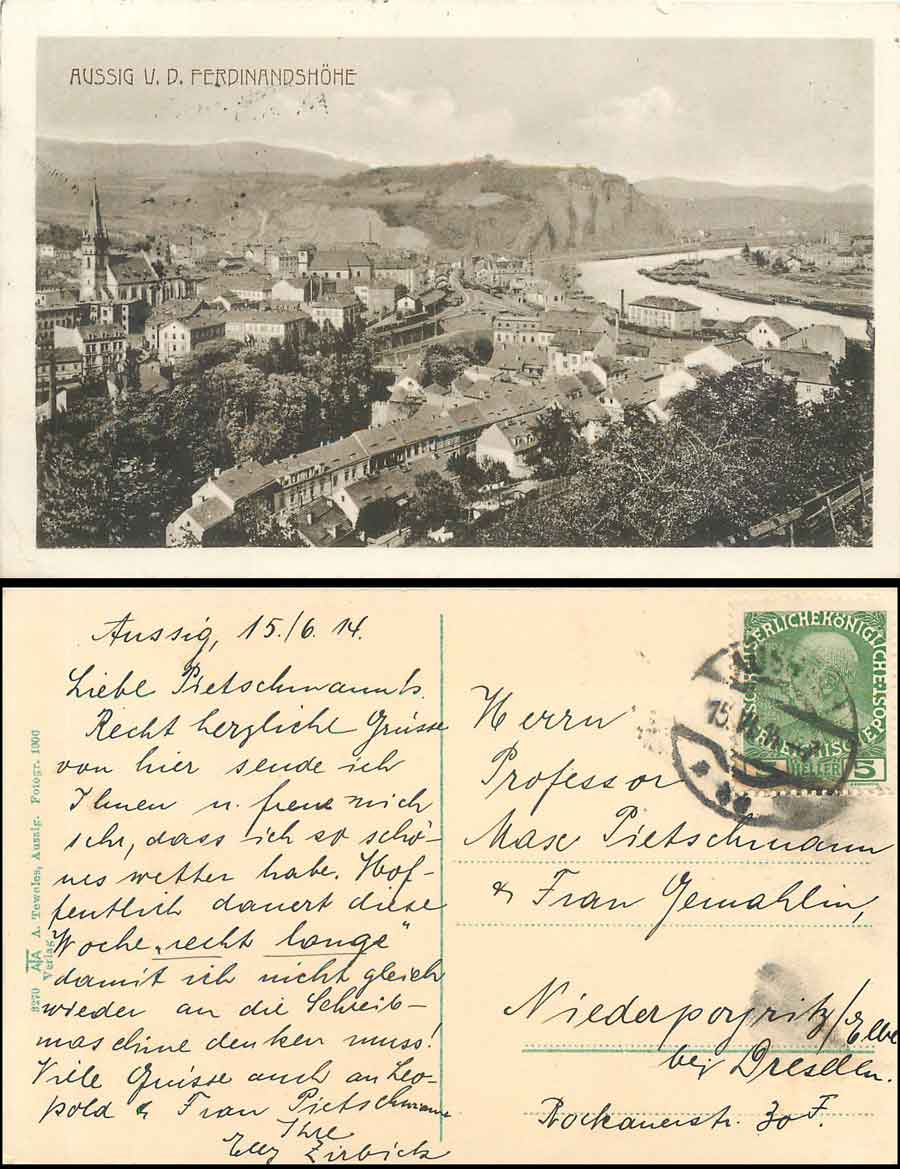 AUSSIG V. D. FERDINANDSHÖHE
Aussig, 15./6. 14.
Liebe Pietschmann's.
Recht herzliche Grüsse
von hier sende ich
Ihnen u. freue mich
sehr, dass ich so schö-
nes wetter habe. Hof-
fentlich dauert diese
Woche „recht lange"
damit ich nicht gleich
wieder an die Schreib-
maschine denken muss!
Viele Grüsse auch an Leo-
pold & Frau Pietschmann
Ihre
Elly Zirbick
3270 ATA A. Teweles, Aussig. Fotogr. 1906
Verlag
Herrn
Professor
Max Pietschmann
& Frau Gemahlin,
Niederpoyritz/Elbe
bei Dresden.
Pockauerstr. 30 F.
KAISERLICHE KÖNIGLICHE
ÖSTERREICHISCHE POST
5 HELLER 5
15. VI. 14